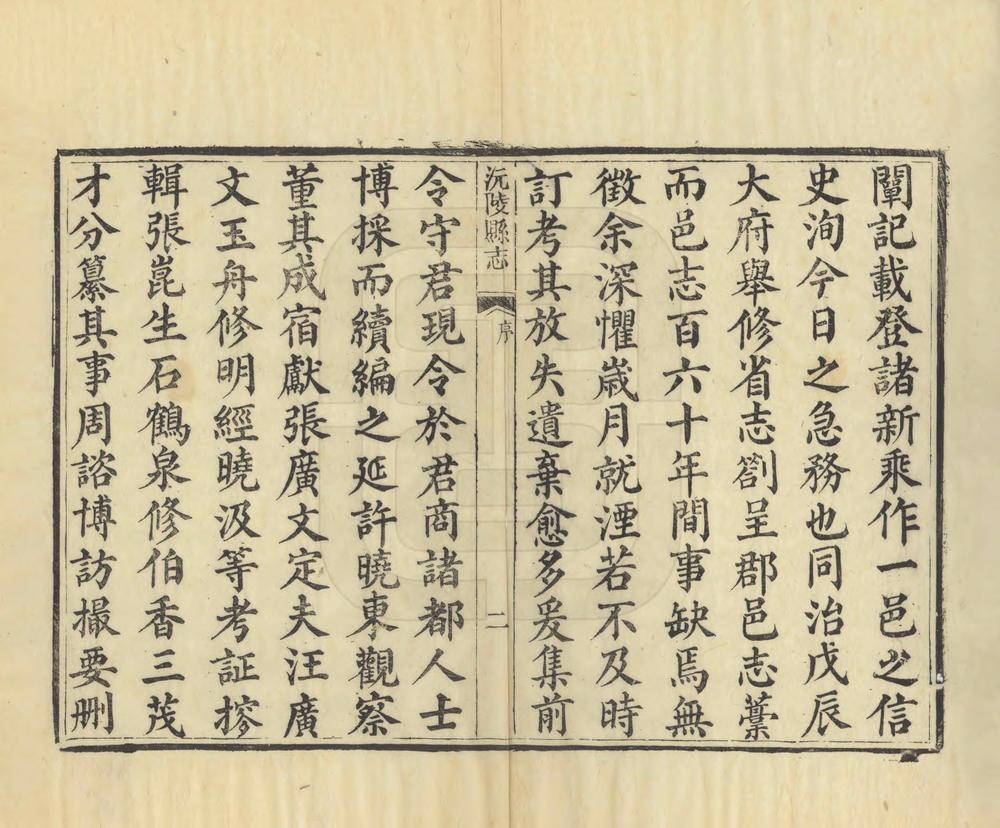 闡記載登諸新乘作一邑之信
史洵今日之急務也同治戊辰
大府舉修省志劄呈郡邑志藁
而邑志百六十年間事缺焉無
徵余深懼歲月就湮若不及時
訂考其放失遺棄愈多爰集前
沅陵縣志
序
二
令守君現令於君商諸都人士
博採而續編之延許曉東觀察
董其成宿獻張廣文定夫汪廣
文玉舟修明經曉汲等考証摎
輯張崑生石鶴泉修伯香三茂
才分纂其事周諮博訪撮要刪